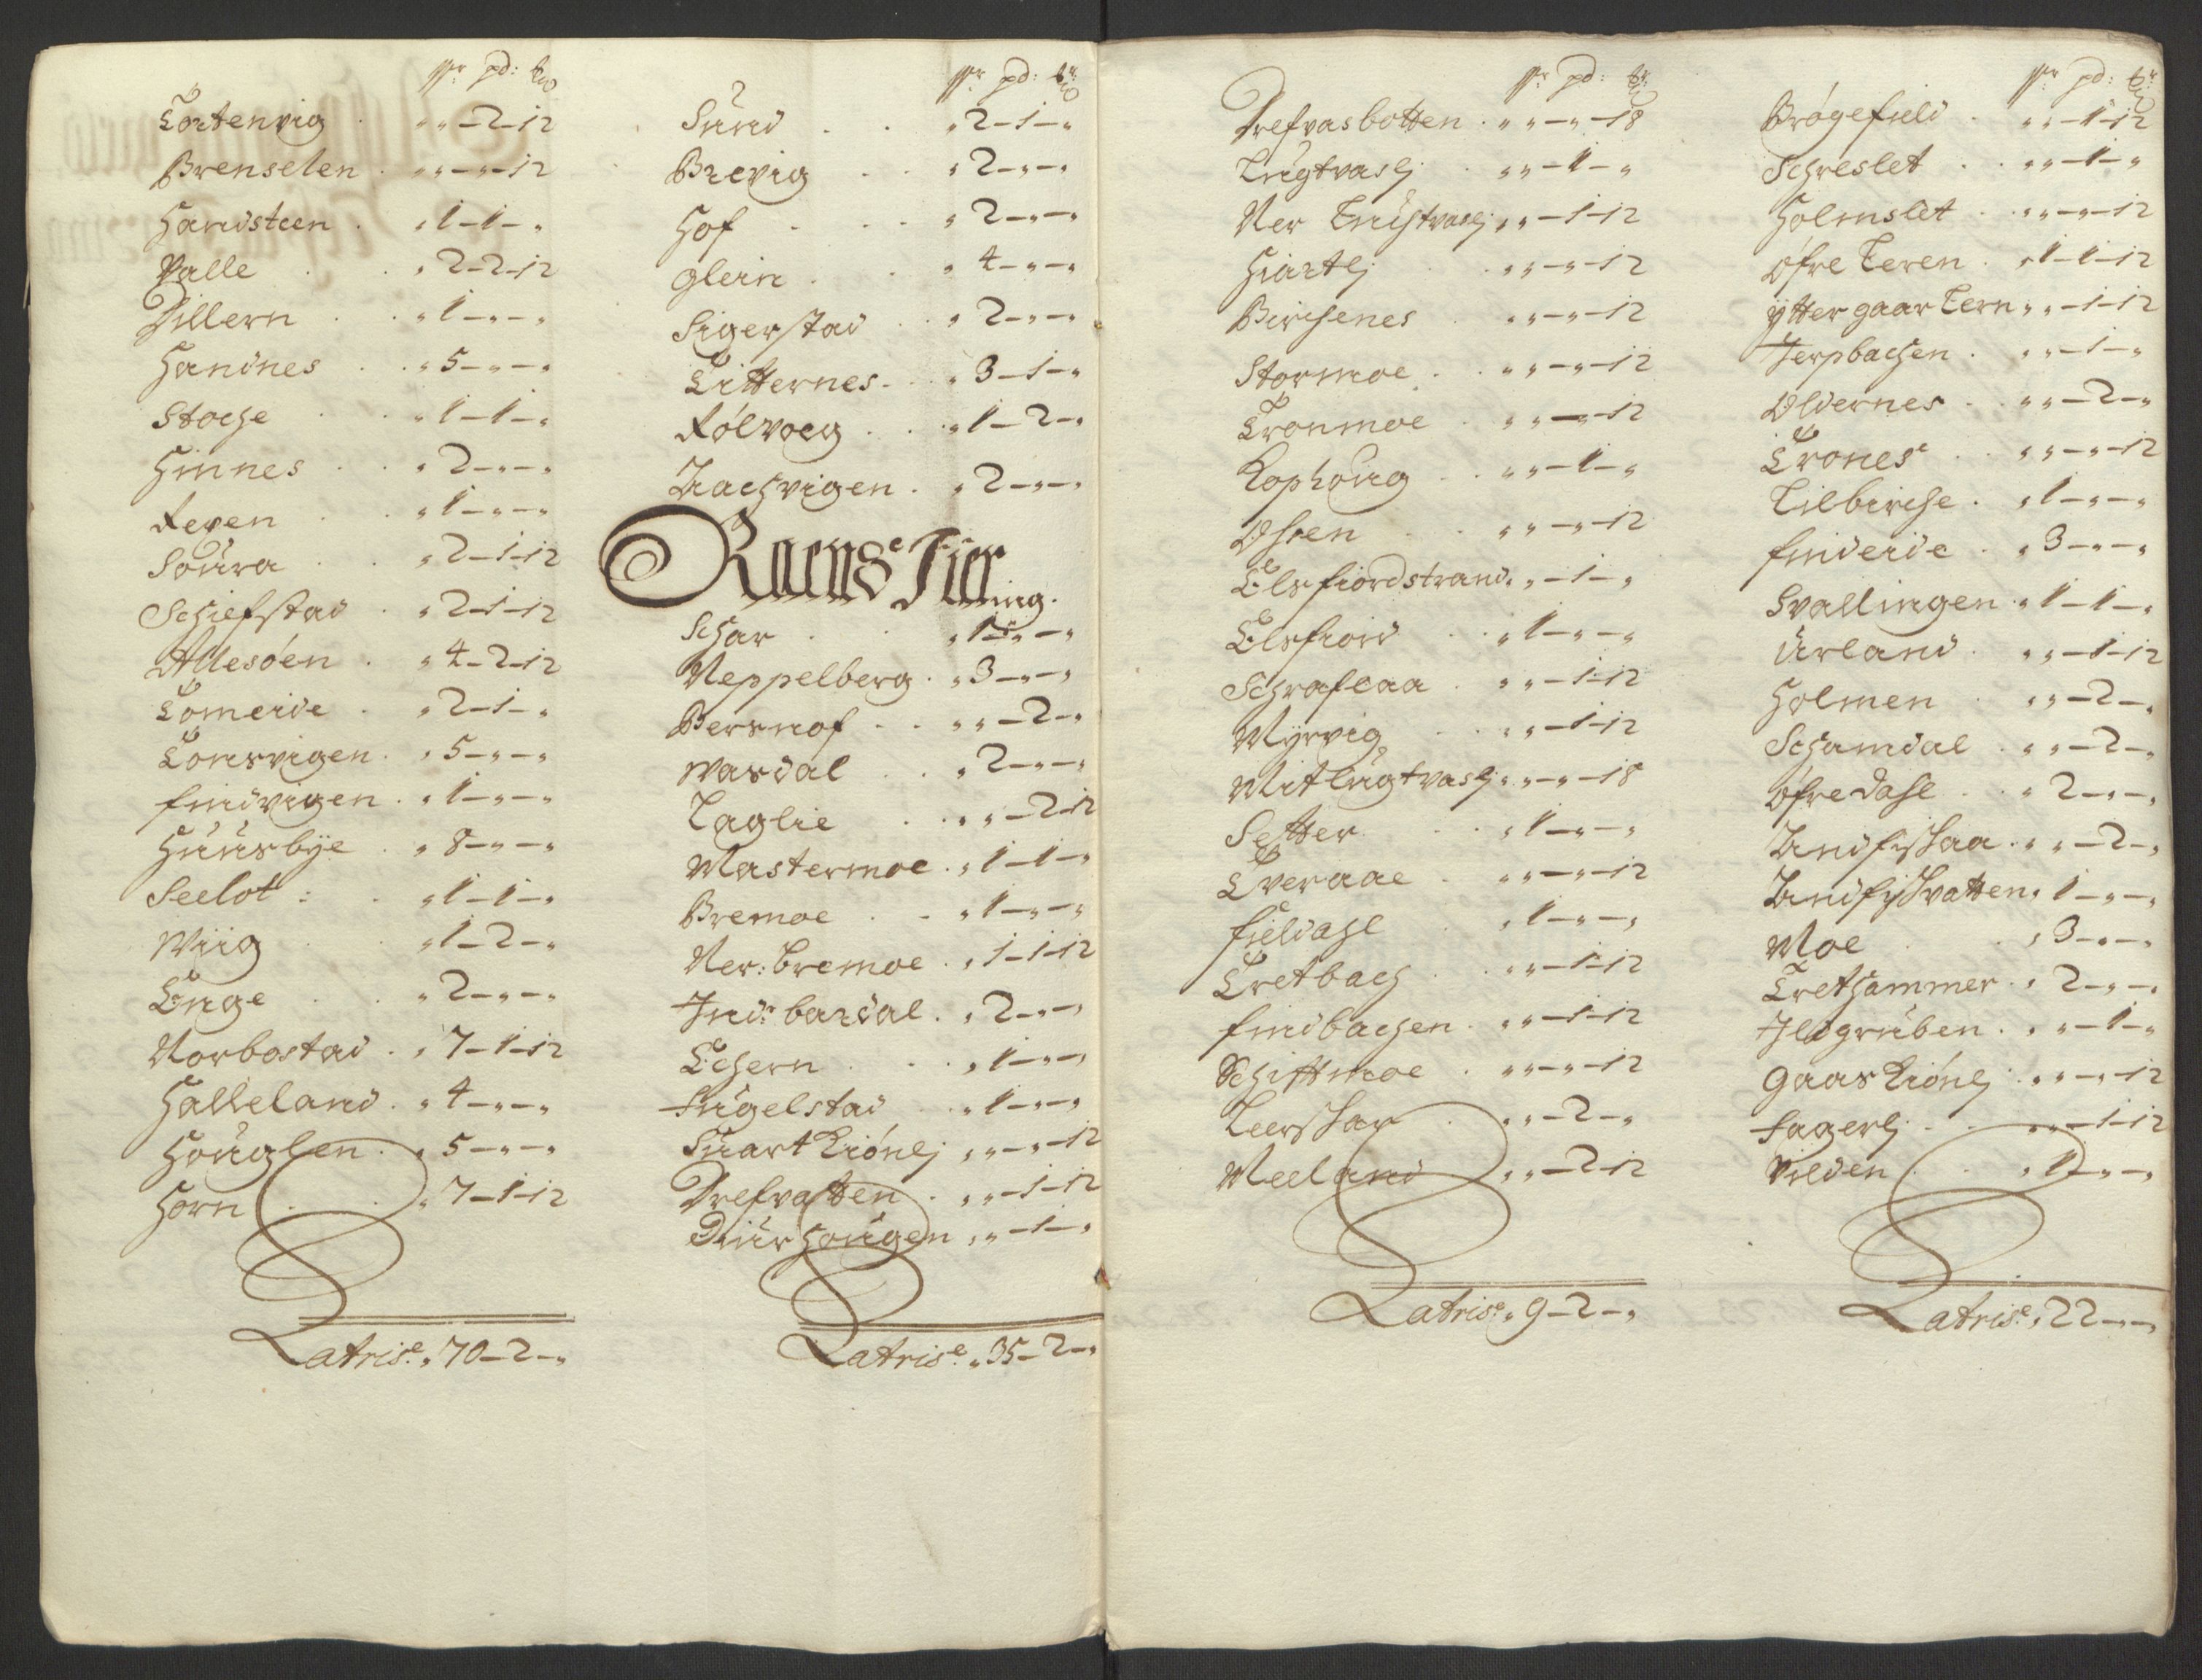 pd:
Tortenvig . „ „ – 2 – 12
Brenselen . „ „ – „ – 12
Handsteen . „ 1 – 1 – „
Valle . . „ 2 – 2 – 12
Dillern . . „ 1 – „ – „
Handnes . . „ 5 – „ – „
Stoche . . „ 1 – 1 – „
Hinnes . . „ 2 – „ – „
Reven . . „ 1 – „ – „
Soüra . . „ 2 – 1 – 12
Schiefstad . „ 2 – 1 – 12
Allesöen . „ 4 – 2 – 12
Tomeide . „ 2 – 1 – „
Tomsvigen . „ 5 – „ – „
findvigen . „ 1 – „ – „
Huüsbÿe . „ 8 – „ – „
Seelot : . „ 1 – 1 – „
Wiig . . „ 1 – 2 – „
Enge . . „ 2 – „ – „
Norbostad . „ 7 – 1 – 12
Halleland . „ 4 – „ – „
Hoüglen . „ 5 – „ – „
Horn . . „ 7 – 1 – 12
Latris: „ 70 – 2 – „
pd:
Sund . . „ 2 – 1 – „
Brevig . . „ 2 – „ – „
Hof . . . „ 2 – „ – „
Glein . . „ 4 – „ – „
Sigerstad . . „ 2 – „ – „
Titternes . . „ 3 – 1 – „
Rølvoeg . . „ 1 – 2 – „
Zachvigen . „ 2 – „ – „
Raens Fiering.
Schar . . „ 1 – „ – „
Neppelberg . „ 3 – „ – „
Bersnof . . „ „ – 2 – „
Wasdal . . „ 2 – „ – „
Laglie . . „ „ – 2 – 12
Mastermoe . „ 1 – 1 – „
Bremoe . . „ 1 – „ – „
Ner: bremoe . „ 1 – 1 – 12
Ind: bardal . „ 2 – „ – „
Echern . . „ 1 – „ – „
Fugelstad . . „ 1 – „ – „
Suart Tiønlj „ „ – „ – 12
Drefvatten . „ „ – 1 – 12
Diürhoügen „ „ – 1 – „
Latris: „ 35 – 2 – „
pd:
Drefvasbotten . „ „ – „ – 18
Lugtvaslj . „ „ – 1 – „
Ner Lugtvaslj „ „ – 1 – 12
Hiartlj . „ „ – „ – 12
Birchenes . „ „ – „ – 12
Stormoe . „ „ – „ – 12
Tronmoe . „ „ – „ – 12
Kophoug . „ „ – 1 – „
Osen . . „ „ – „ – 12
Elsfiordstrand „ „ – 1 – „
Elsfiord . „ 1 – „ – „
Schraflaa . „ „ – 1 – 12
Mÿrvig . . „ „ – 1 – 12
Mitlugtvaslj „ „ – „ – 18
Setter . . „ 1 – „ – „
Tveraae . „ „ – „ – 12
fieldahl . „ 1 – „ – „
Tretbach . „ „ – 1 – 12
findbachen . „ „ – 1 – 12
Schiftmoe . „ „ – „ – 12
Leerskar . „ „ – 2 – „
Meeland „ „ – 2 – 12
Latris: „ 9 – 2 – „
pd:
Brøgefield . „ „ – 1 – 12
Schreslet . . „ „ – 1 – „
Holmslet . „ „ – „ – 12
øfre Teren . „ 1 – 1 – 12
ÿtter gaar Tern „ „ – 1 – 12
Jerpbachen . „ „ – 1 – „
Oldernes . „ „ – 2 – „
Trones . . „ „ – „ – 12
Tilbirche . „ 1 – „ – „
findeide . „ 3 – „ – „
Svallingen . „ 1 – 1 – „
Urland . „ „ – 1 – 12
Holmen . „ „ – 2 – „
Schamdal . „ „ – 2 – „
øfredahl . „ 2 – „ – „
Undfiskaa . „ „ – 2 – „
Undfiskvatten „ 1 – „ – „
Moe . . „ 3 – „ – „
Trethammer . „ 2 – „ – „
Ildgruben . „ „ – 1 – „
Gaas Tiønlj . „ „ – „ – 12
Fagerlj . . „ „ – 1 – 12
Vilden . . „ 1 – „ – „
Latris: „ 22 – „ – „